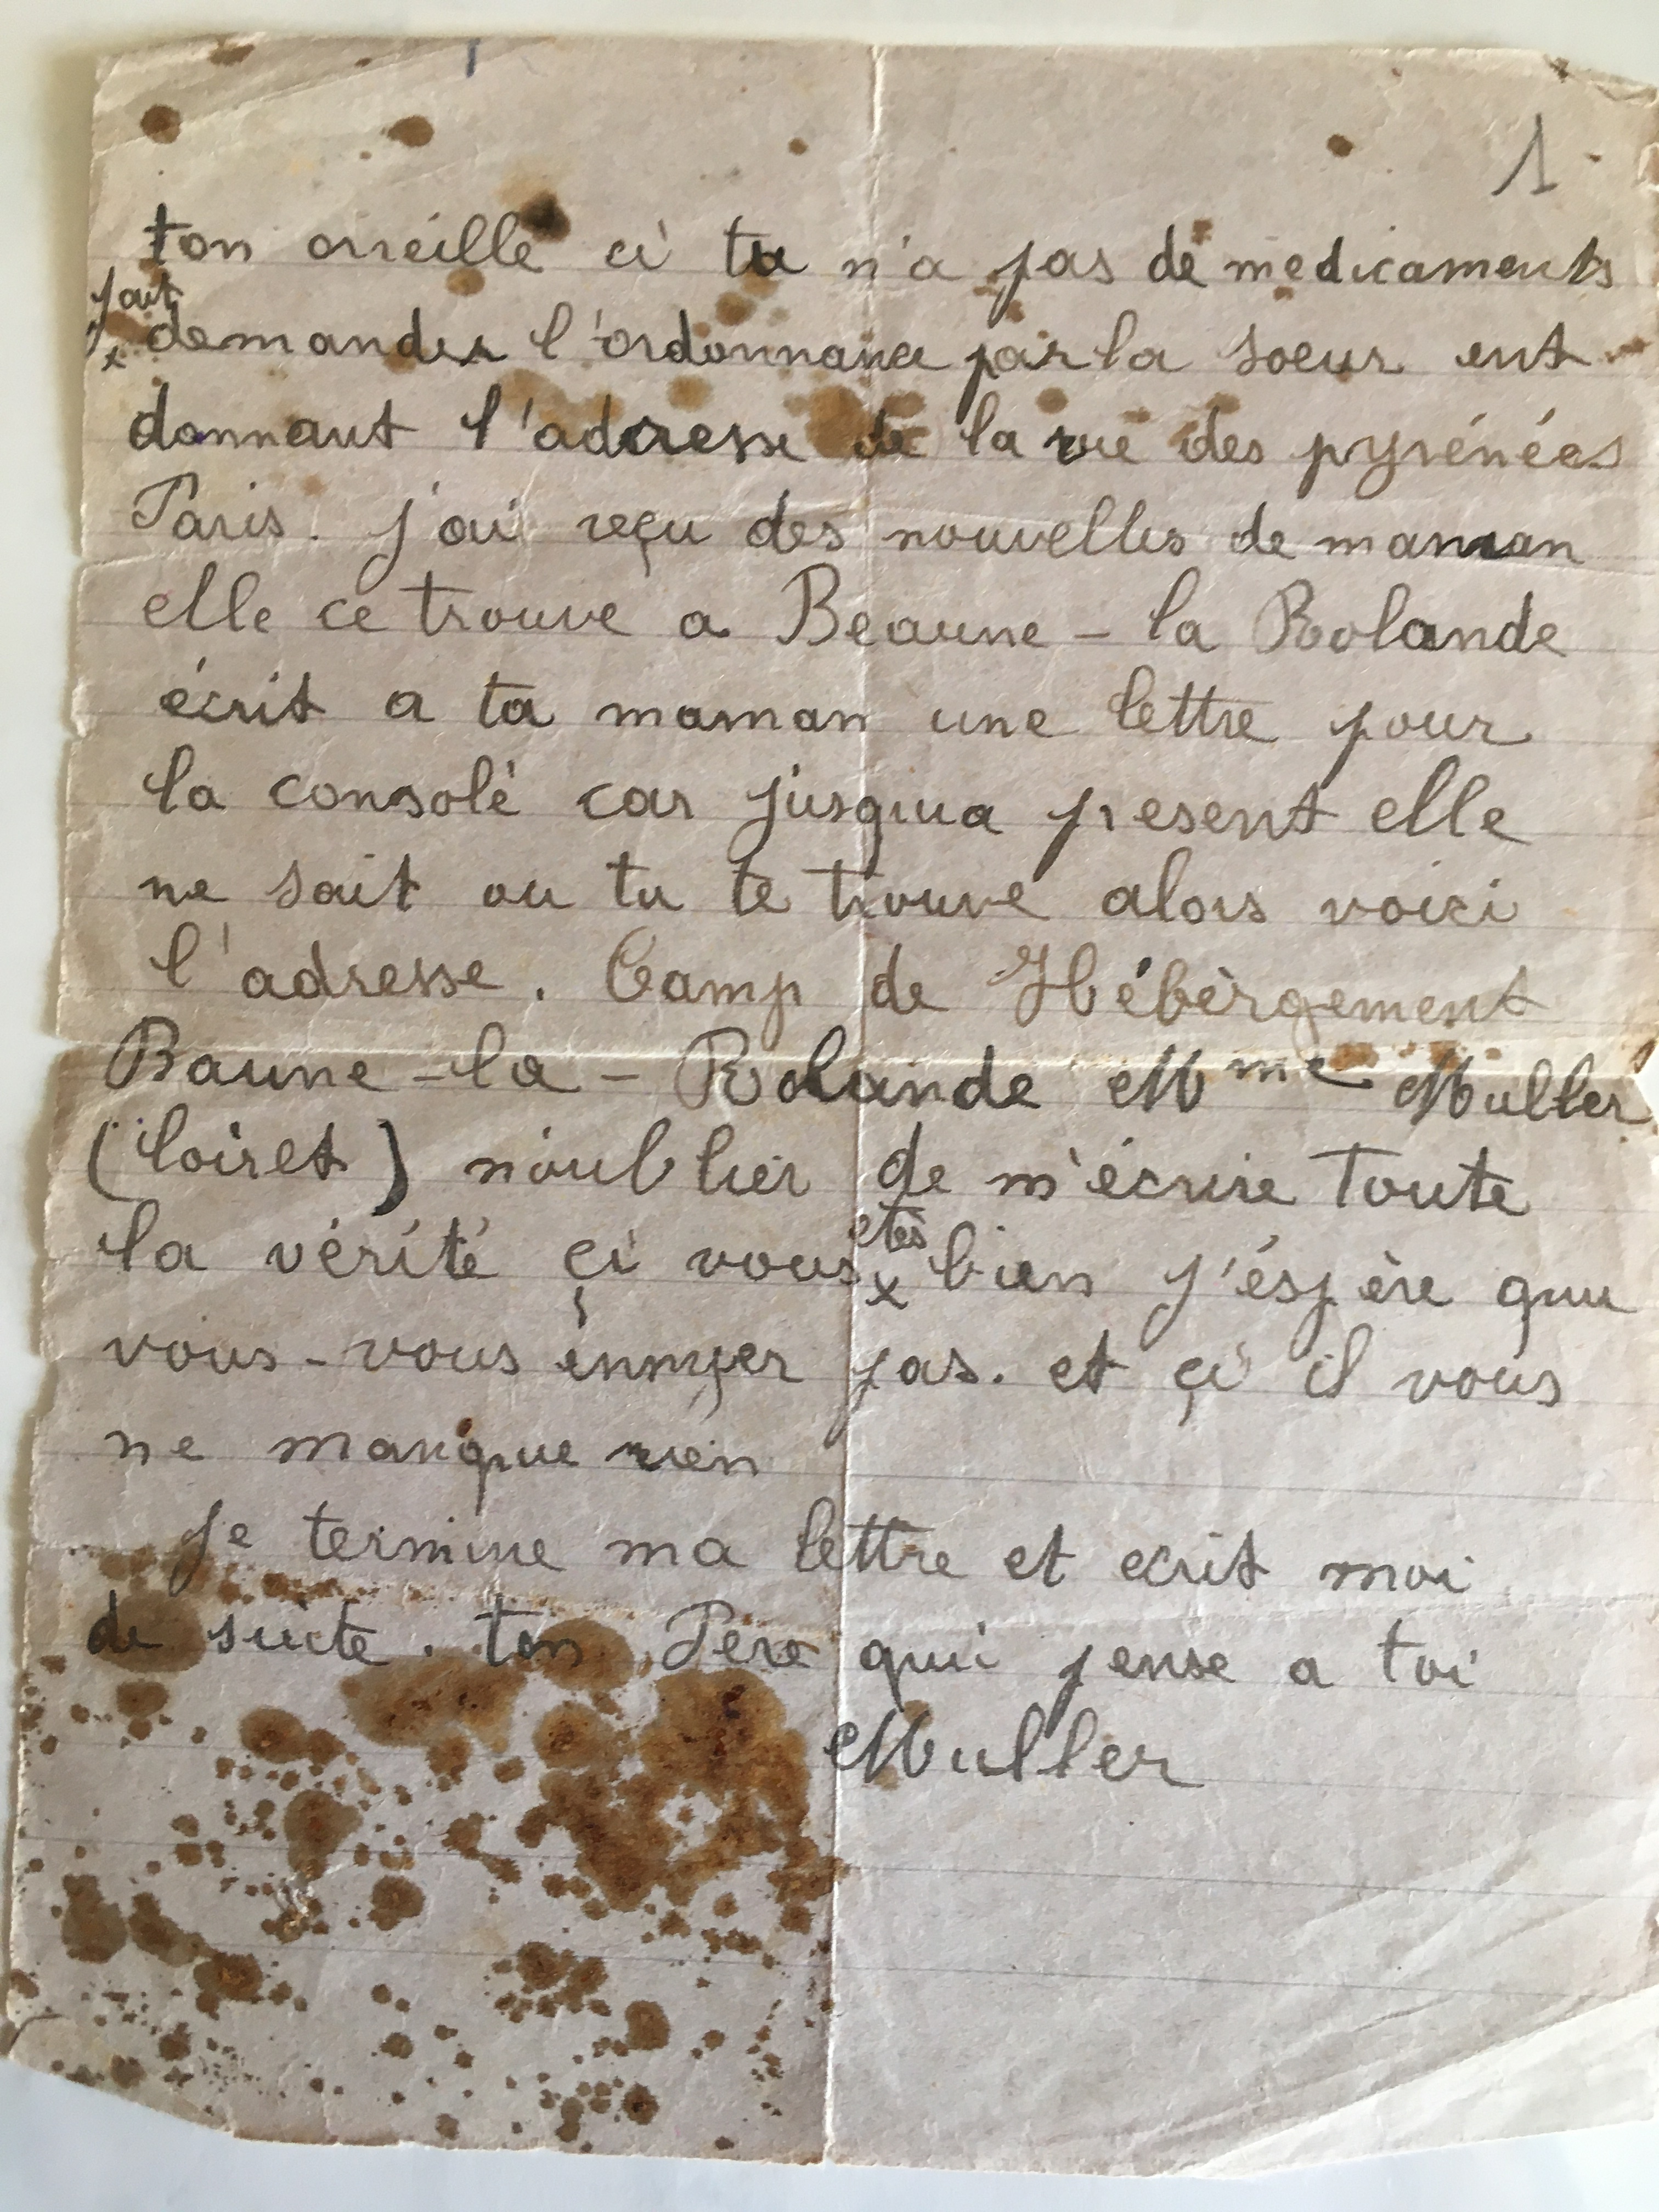 1
ton orreille ci tu n'a pas de medicaments
fait
x demander l'ordonnance par la soeur ent
donnant l'adresse de la rue des pyrénées
Paris. j'ai reçu des nouvelles de maman
elle ce trouve a Beaune - la Rolande
écrit a ta maman une lettre pour
la consolé car jusqua present elle
ne sait ou tu te trouve alors voici
l'adresse. Camp de Hébèrgement
Baune - la - Rolande Mme Muller
(loiret) n'oublier de m'écrire toute
etes
la vérité çi vous x bien j'éspère que
vous - vous ennyer pas. et çi il vous
ne manque rien
je termine ma lettre et ecrit moi
de suite. ton Père qui pense a toi
Muller